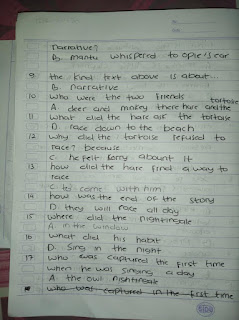 narrative?
B. Mantu whispered to opie's ear
9. the kind text above is about...
B. narrative
10 Who were the two friends
A deer and making there hare and the tortoise
11 What did the hare ask the tortoise
D. race down to the beach
12 Why did the tortoise refused to
race? because
C. he felt sorry abount it
13 how did the hare find a way to
race
C. to with him
14 how was the end of the story
D. they will race all day
15 where did the nightingale
A in the window
16 what did his habit
D. Sing in the night
17 who was captured the first time
when he was singing a day
A the owl nightingale
who was captured in the first time